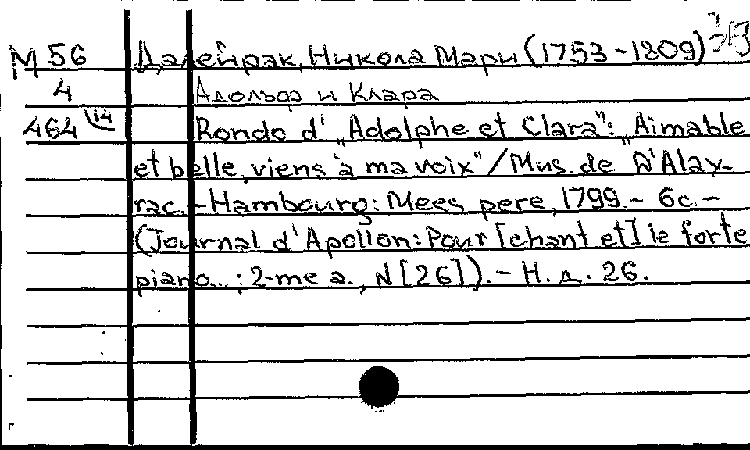 М 56 Далейрак, Никола Мари (1753-1809)
4 Адольф и Клара
464 14 Rondo d' „Adolphe et Clara": „Aimable
et belle, viens à ma voix" / Mus. de D'Alay-
rac. - Hambourg: Mees pere, 1799. - 6 с. -
(Journal d'Apollon: Pour [chant et] le forte
piano...; 2-me a., N [26]). - Н. д. 26.